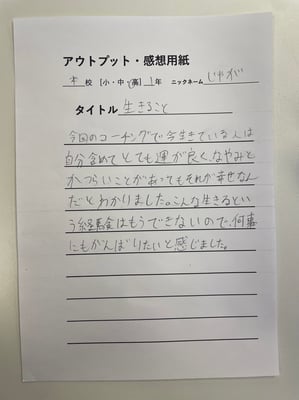 アウトプット・感想用紙
本校 [小・中・高] 1年 ニックネーム じゃが
タイトル 生きること
今回のコーチングで今生きている人は
自分含めてとても運が良く、なやみと
かつらいことがあってもそれが幸せなん
だとわかりました。こんな生きるとい
う経験はもうできないので、何事
にもがんばりたいと感じました。